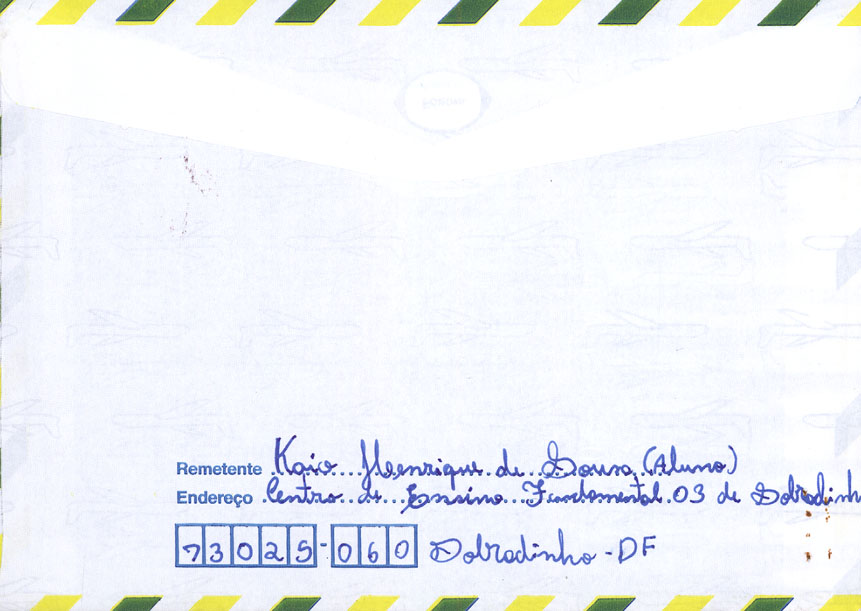 Remetente Kaio Henrique de Sousa (Aluno)
Endereço Centro de Ensino Fundamental 03 de Sobradinh
73025-060 Sobradinho - DF